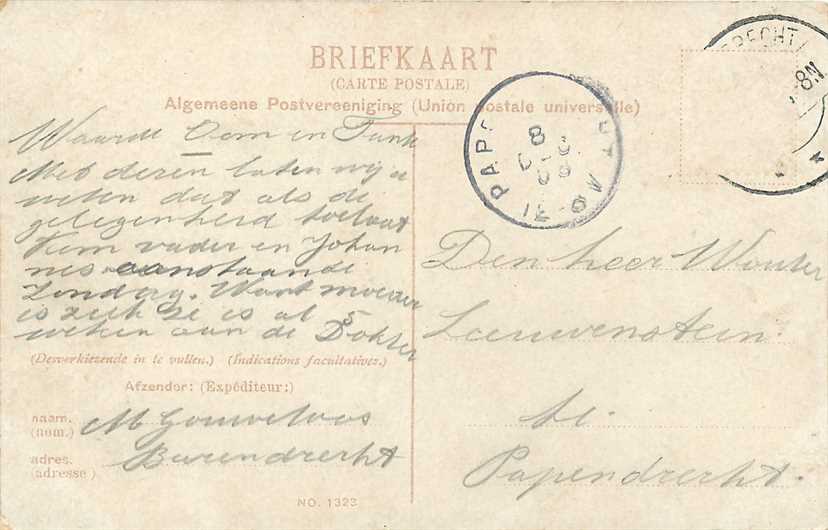 BRIEFKAART
(CARTE POSTALE)
Algemeene Postvereeniging (Union postale universelle)
Waarde Oom en Tante
Met deren laten wij u
weten dat als de
gelegenheid toelaat
kom vader en Johan
nes aanstaande
Zondag. Want moeder
is ziek ze is al 5
weken aan de Dokter
(Desverkiezende in te vullen.) (Indications facultatives.)
Afzender: (Expéditeur:)
naam. (nom.) M Gouweloos
adres. (adresse) Barendrecht
NO. 1323
PAP
8
RECHT
8N
Den heer Wouter
Leeuwenstein
te
Papendrecht.